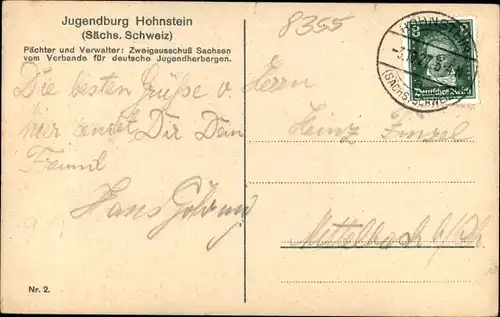 Jugendburg Hohnstein
(Sächs. Schweiz)
Pächter und Verwalter: Zweigausschuß Sachsen
vom Verbande für deutsche Jugendherbergen.
8355
HOHNSTEIN
(SÄCHS. SCHWEIZ)
8
Deutsches Reich
Die besten Grüße v.
hier sendet Dir Dein
Freund
Hans
Herrn
Heinz
Mittelbach
Nr. 2.